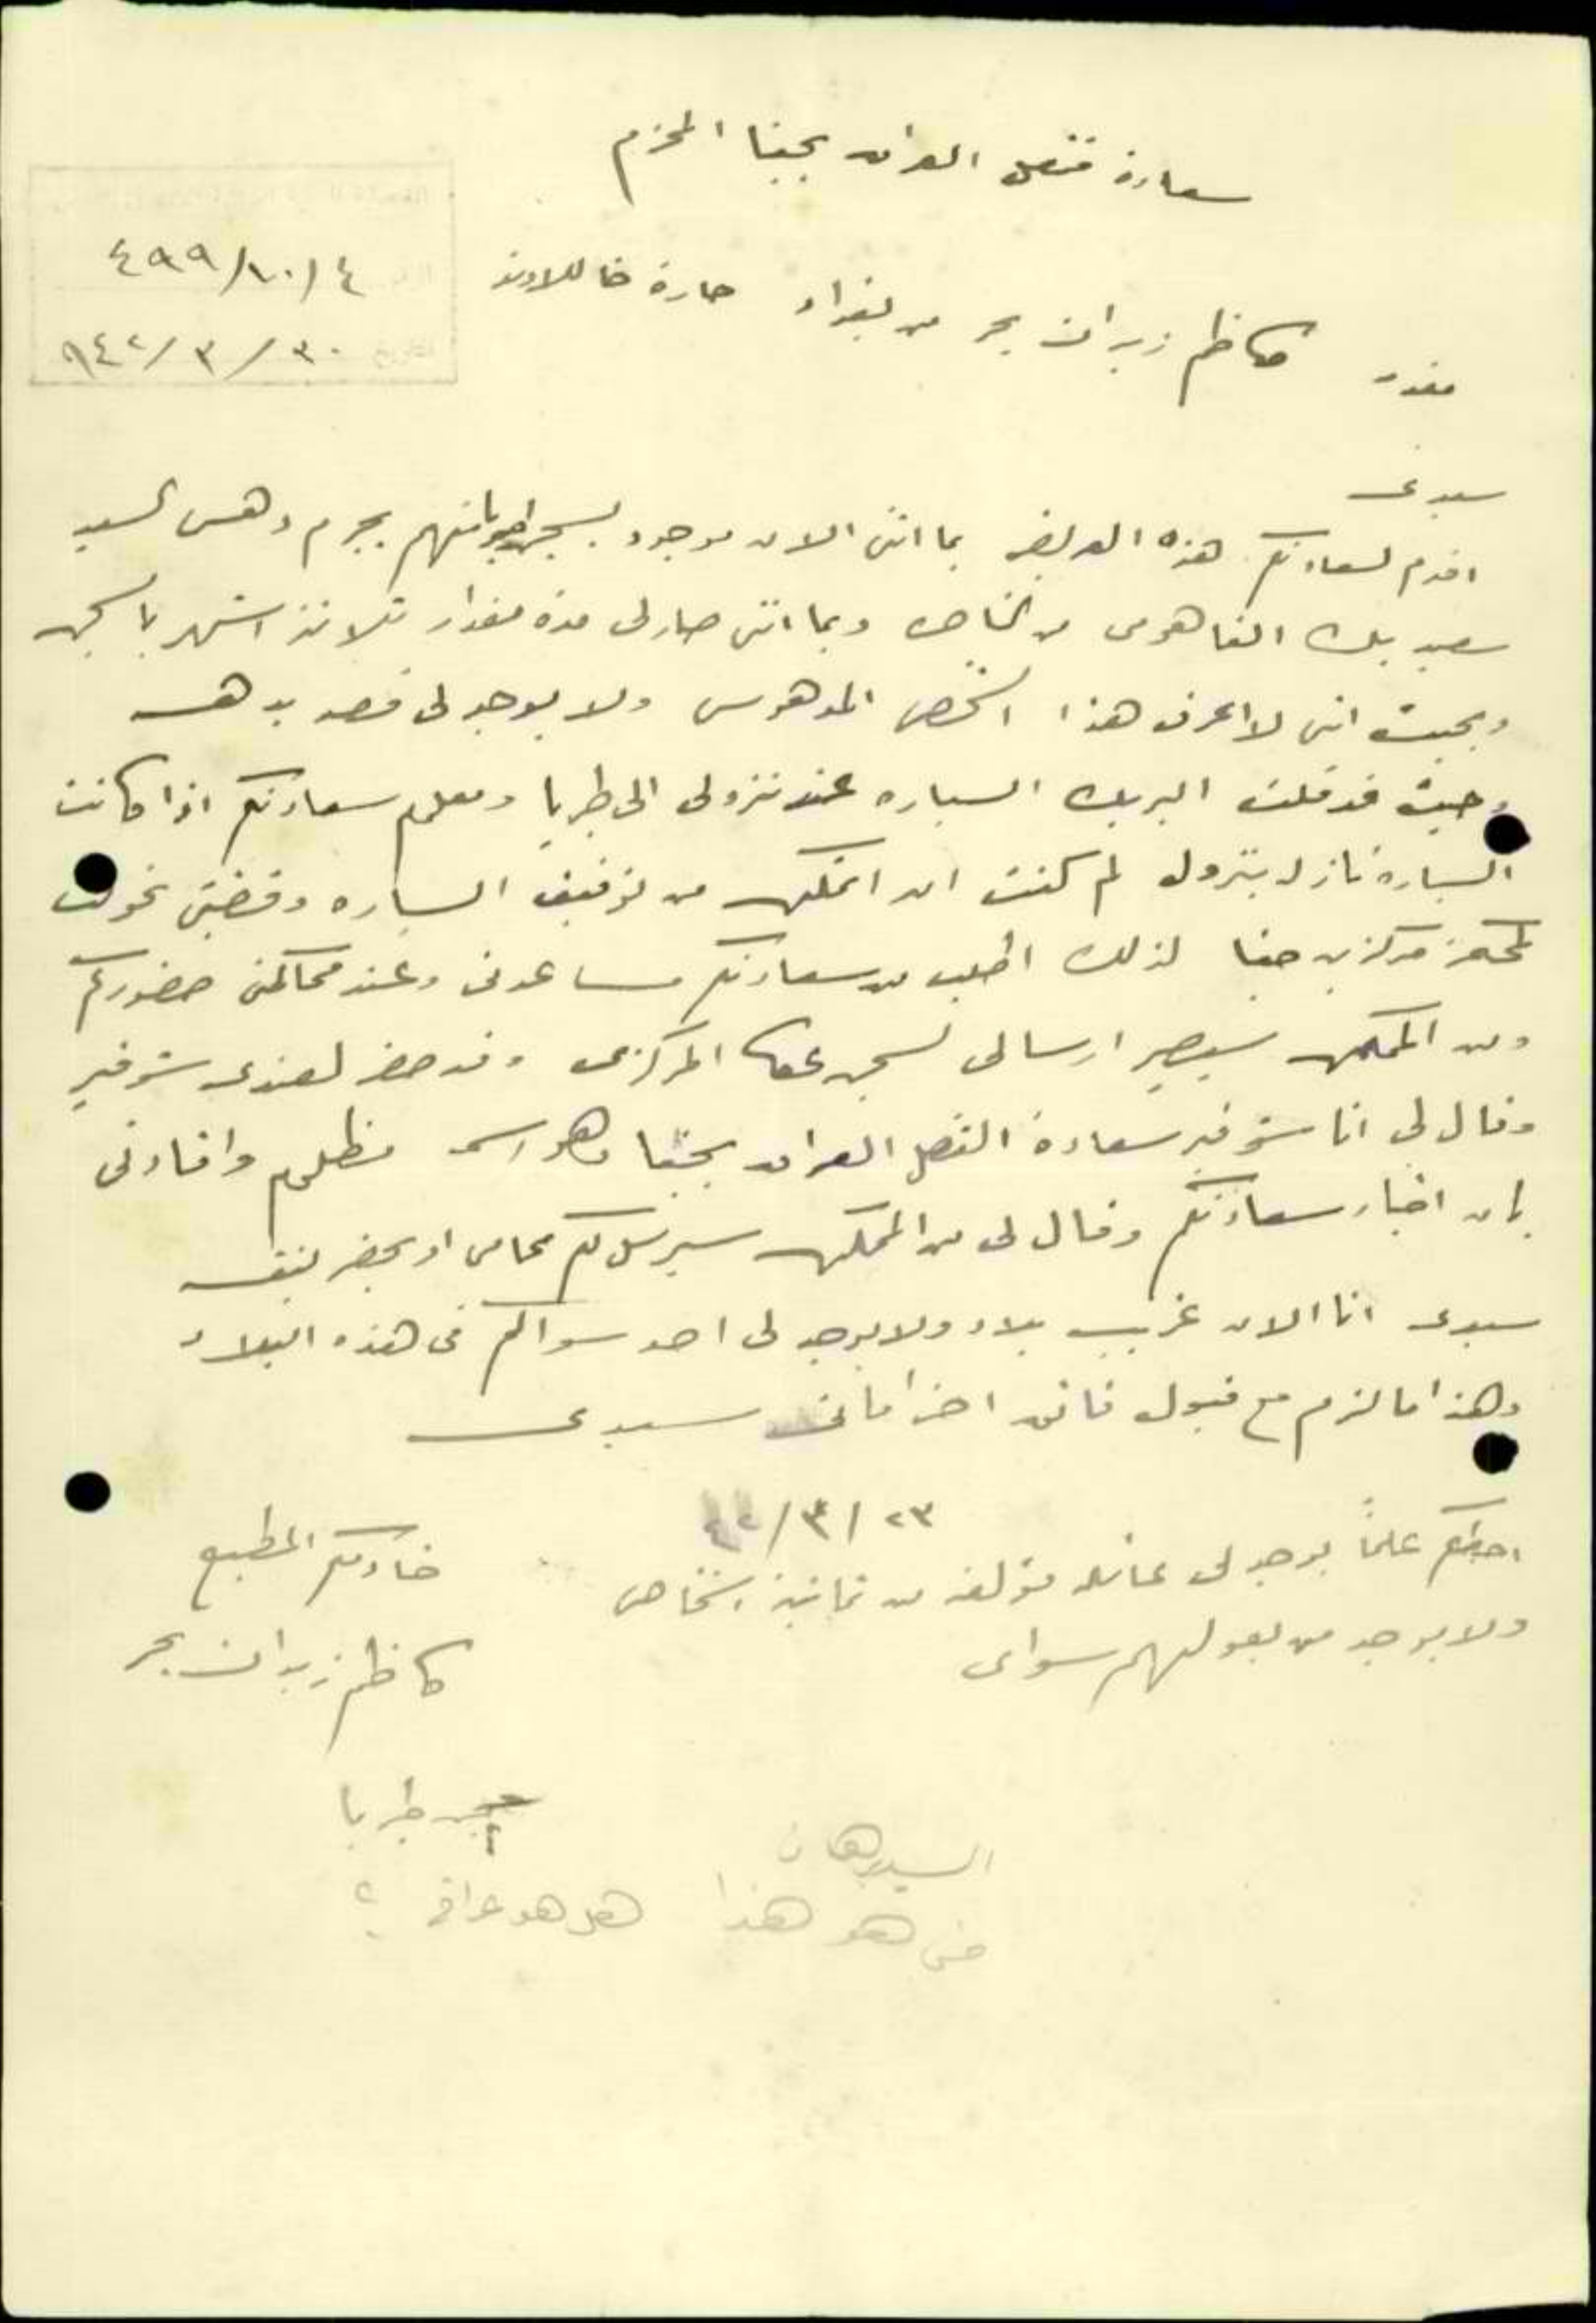 سعادة قنصل العراق بحيفا المحترم
٤٩٩/١٠/٤
٩٤٢/٣/٣٠
مقدمه كاظم زيدان بحر من بغداد حارة خان اللاوند
سيدي
اقدم لسعادتكم هذه العريضه بما انني الان موجود بسجن طبريا متهم بجرم دهس السيد
سعيد بك الفاهوم من الناصره وبما انني صار لي مدة مقدار ثلاثة اشهر بالسجن
وبحيث انني لا اعرف هذا الشخص المدهوس ولا يوجد لي قصد بدهسه
وحيث قد فلت البريك السياره عند نزولي الى طبريا ومعلوم سعادتكم اذا كانت
السياره نازله بنزول لم كنت ان اتمكن من توقيف السياره وقضيتي تحولت
لمحكمة مركزية حيفا لذلك اطلب من سعادتكم مساعدتي وعند محاكمتي حضوركم
ومن الممكن سيصير ارسالي لسجن عكا المركزي وقد حضر لعندي شوفير
وقال لي انا شوفير سعادة القنصل العراق بحيفا وهو اسمه مظلوم وافادني
بان اخبار سعادتكم وقال لي من الممكن سيرسل لكم محامي او يحضر بنفسه
سيدي انا الان غريب بلاد ولا يوجد لي احد سواكم في هذه البلاد
وهذا ما لزم مع قبول فائق احتراماتي سيدي
٢٣/٣/٤٢
احيطكم علماً يوجد لي عائله مؤلفه من ثمانية اشخاص
ولا يوجد من يعولهم سواي
خادمكم المطيع
كاظم زيدان بحر
سجن طبريا
السيد برهان
من هو هذا هل هو عراقي ؟